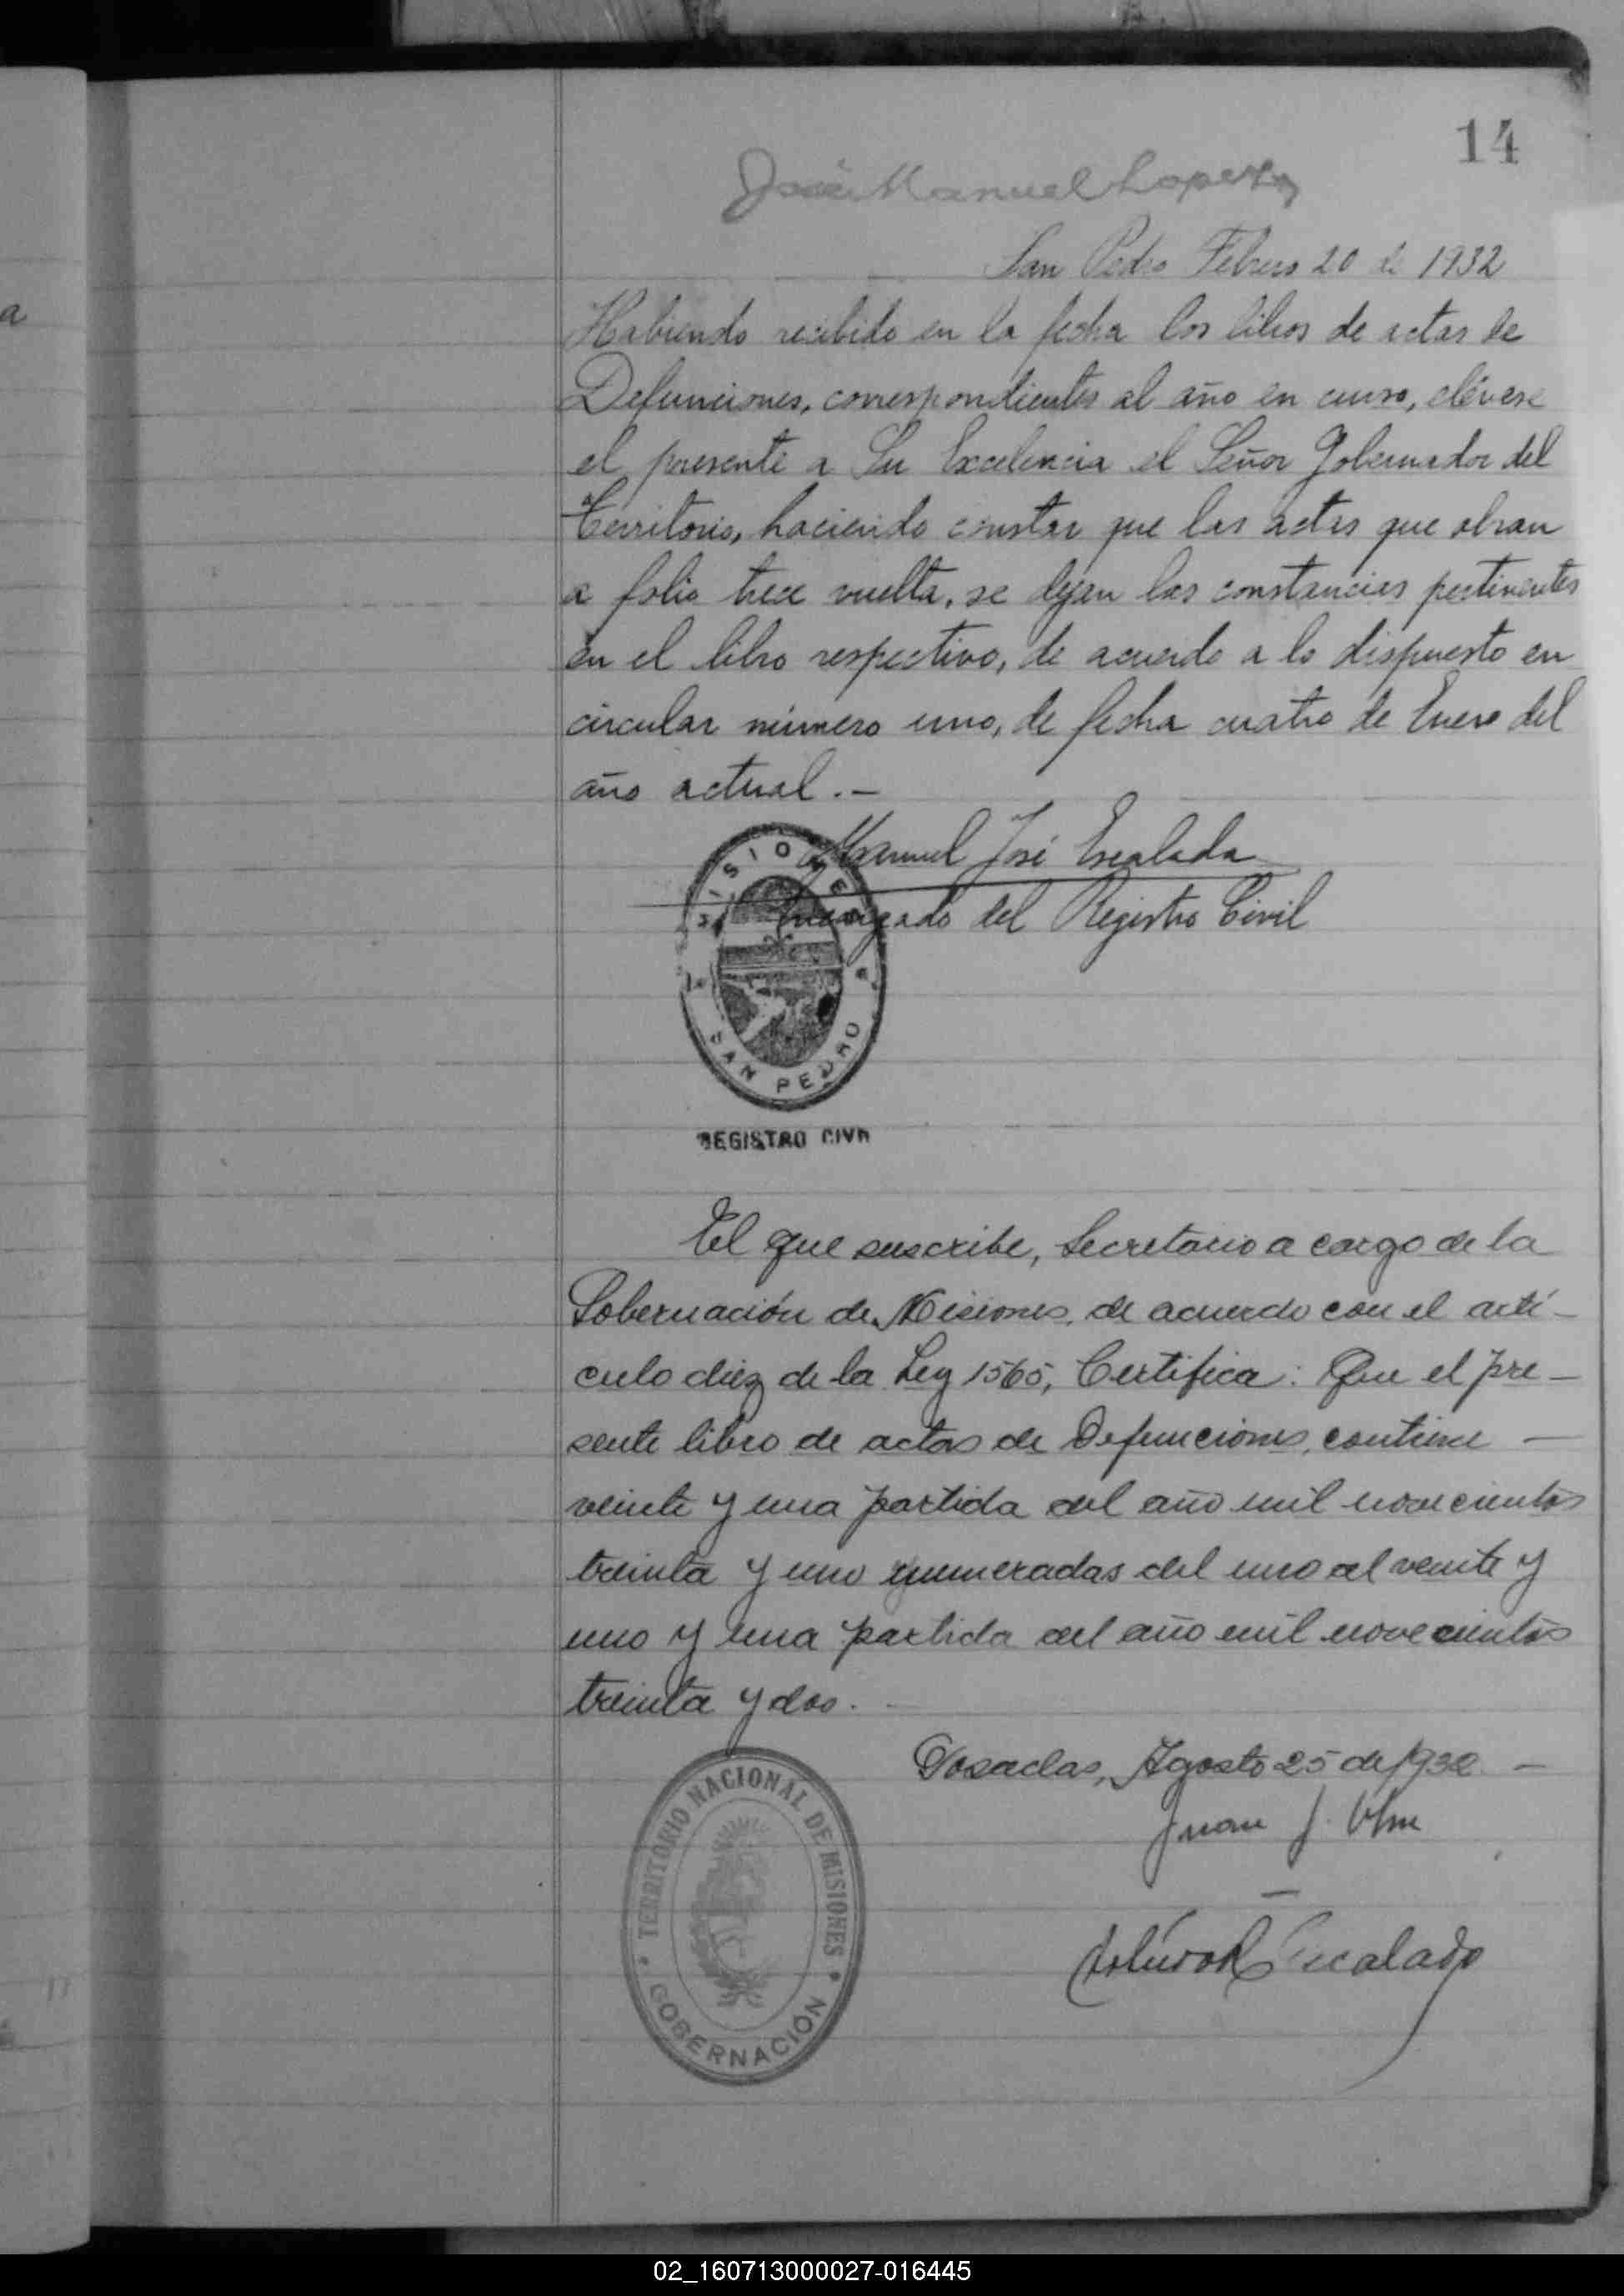 14
José Manuel Lopez
San Pedro Febrero 20 de 1932
a
Habiendo recibido en la fecha los libros de actas de
Defunciones, correspondientes al año en curso, elévese
el presente a Su Excelencia el Señor Gobernador del
Territorio, haciendo constar que las actas que obran
a folio trece vuelta, se dejan las constancias pertinentes
en el libro respectivo, de acuerdo a lo dispuesto en
circular número uno, de fecha cuatro de Enero del
año actual.-
Manuel José Escalada
Encargado del Registro Civil
MISIONES
SAN PEDRO
REGISTRO CIVIL
El que suscribe, Secretario a cargo de la
Gobernación de Misiones, de acuerdo con el artí-
culo diez de la Ley 1565, Certifica: Que el pre-
sente libro de actas de Defunciones, contiene —
veinte y una partida del año mil novecientos
treinta y uno numeradas del uno al veinte y
uno y una partida del año mil novecientos
treinta y dos.
Posadas, Agosto 25 de 1932 —
Juan J.
Escalada
TERRITORIO NACIONAL DE MISIONES
GOBERNACIÓN
02_160713000027-016445